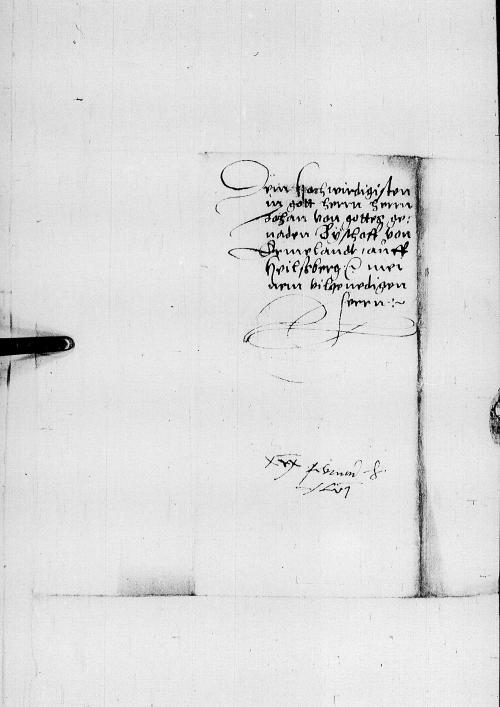 Dem hochwirdigisten
in gott herrn herrn
Johan von gottes ge:
naden Byschoff von
Ermelandt auff
Heilsberg mei
nem vilgenedigen
herrn